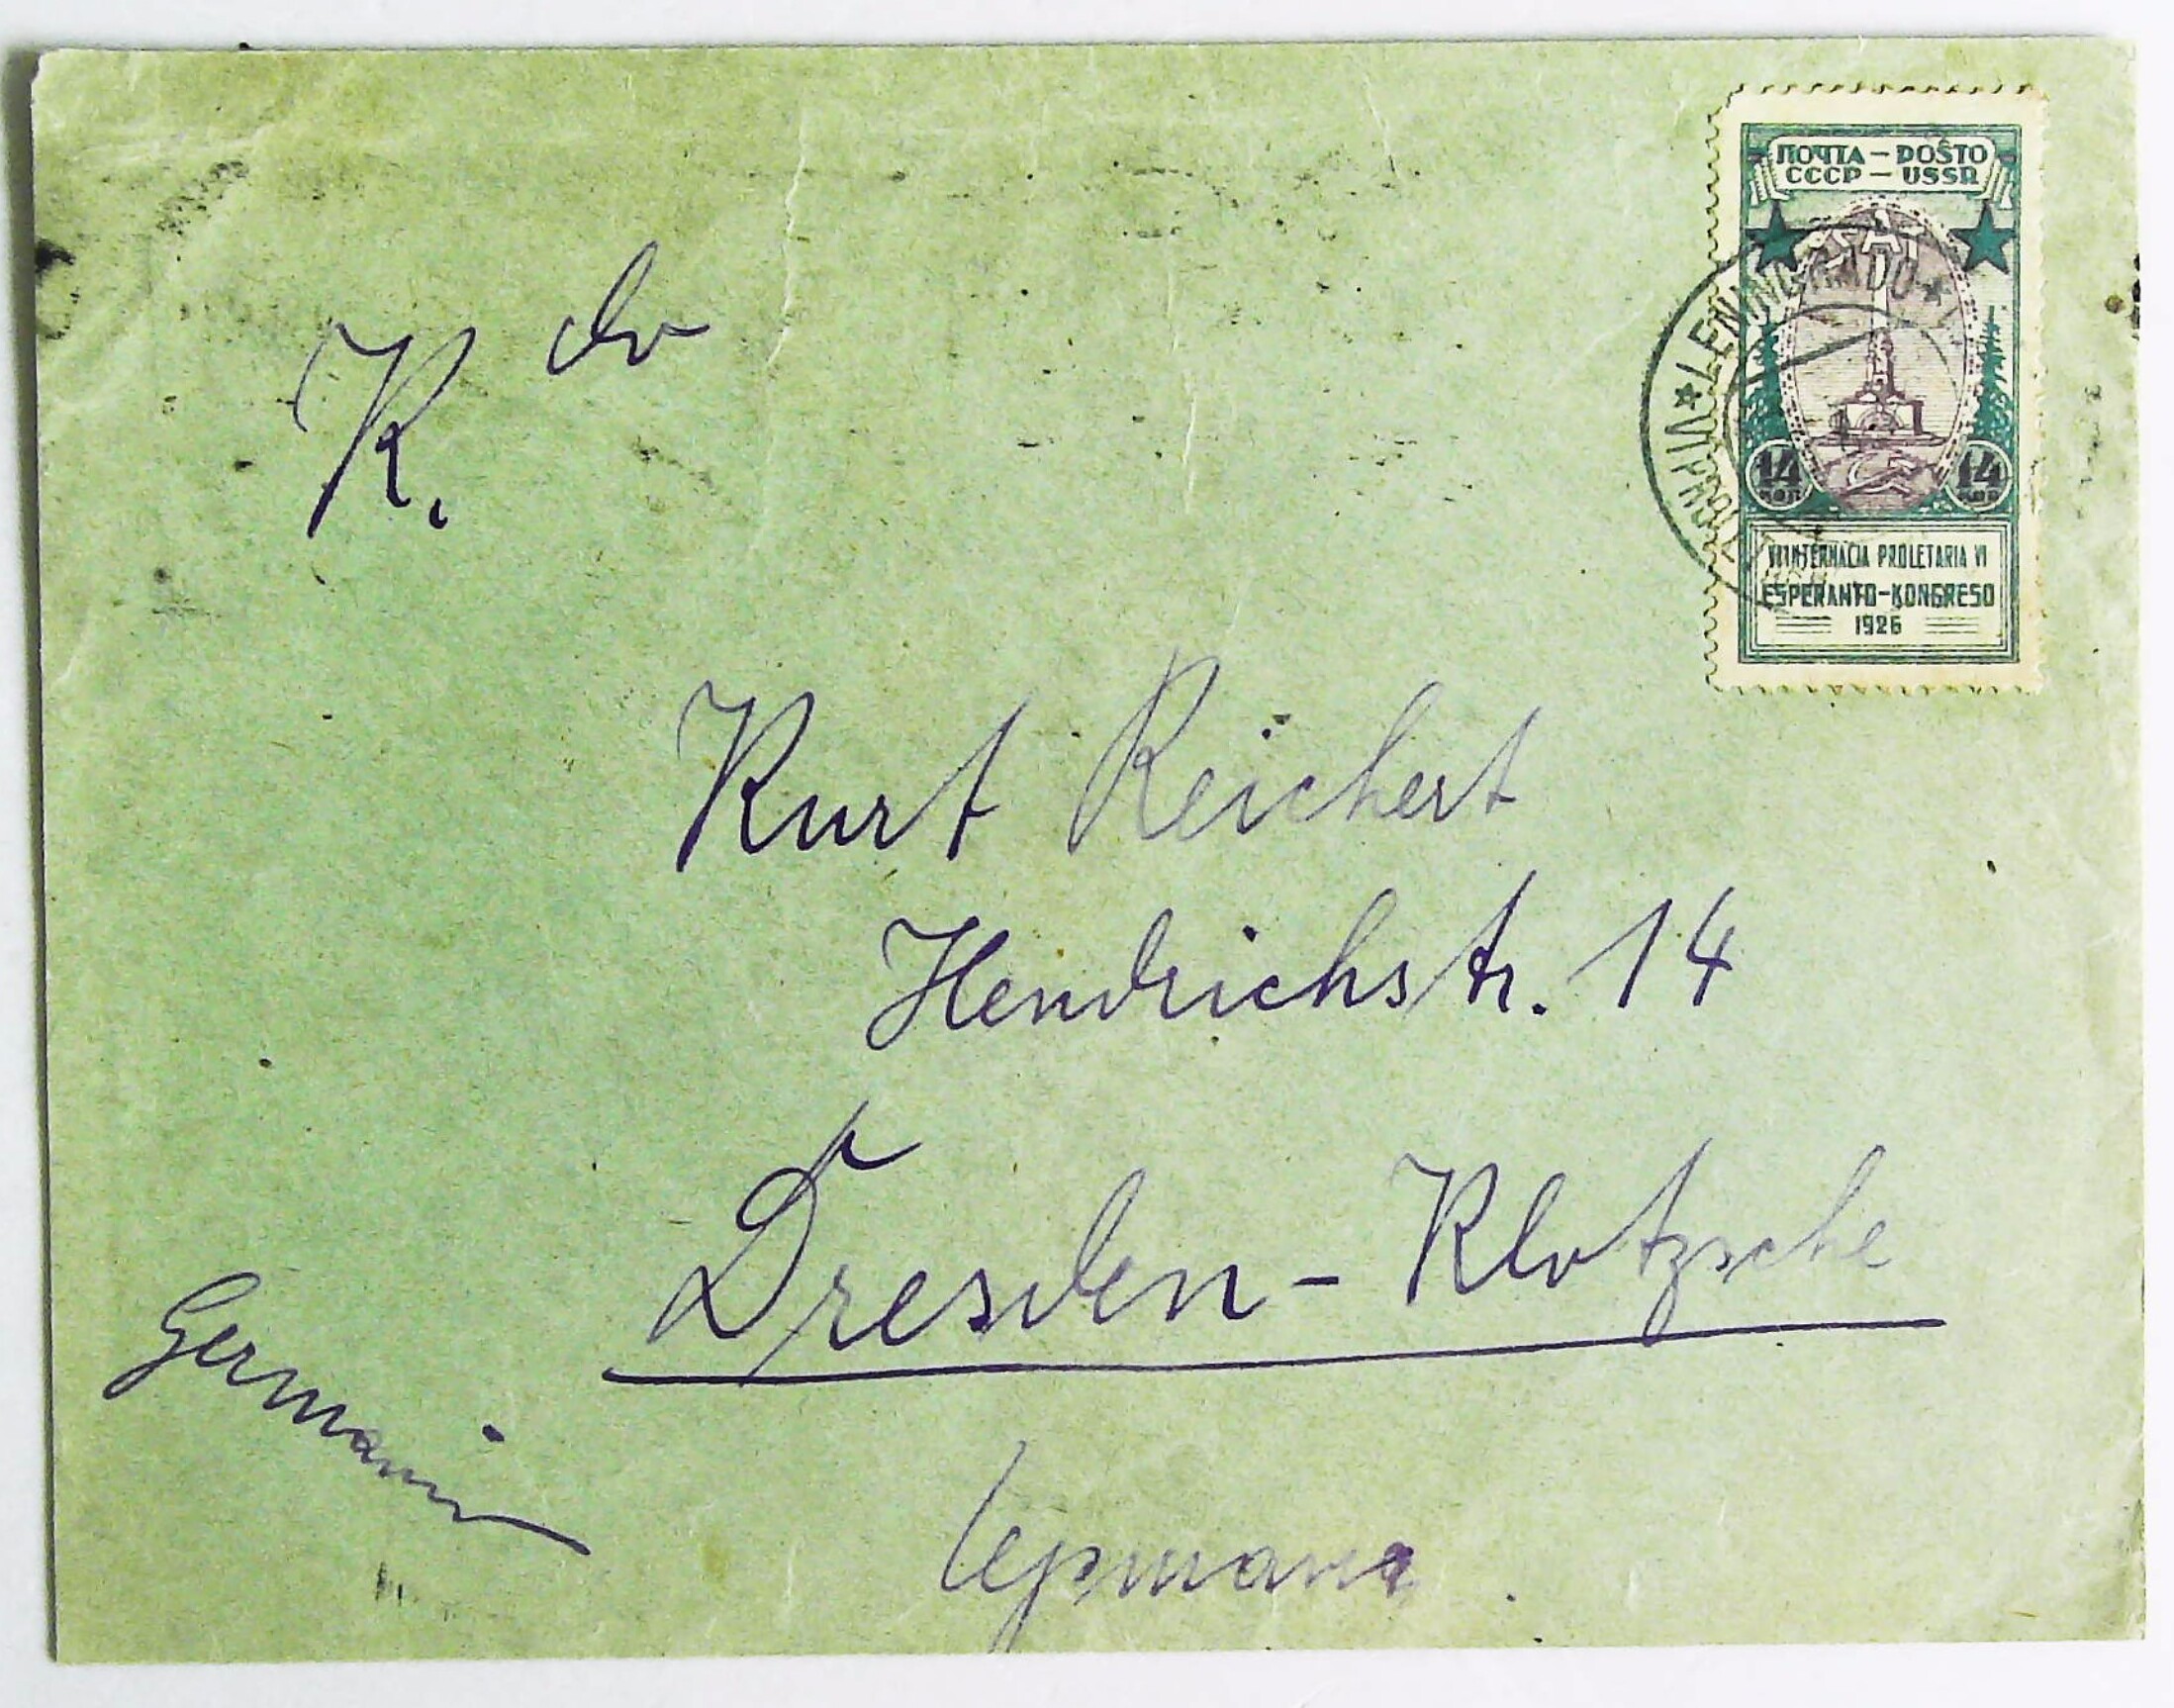 ПОЧТА – POŜTO
СССР – USSR
SAT
LENINGRADO
14 КОП 14 КОП
VI INTERNACIA PROLETARIA VI
ESPERANTO-KONGRESO
1926
K. do
Kurt Reichert
Hendrichstr. 14
Dresden-Klotzsche